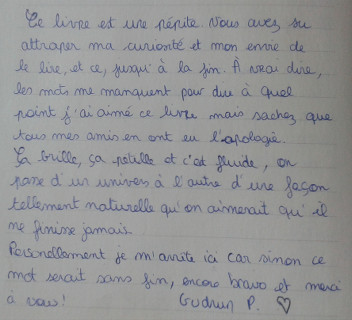 Ce livre est une pépite. Vous avez su
attraper ma curiosité et mon envie de
le lire, et ce, jusqu'à la fin. À vrai dire,
les mots me manquent pour dire à quel
point j'ai aimé ce livre mais sachez que
tous mes amis en ont eu l'apologie.
Ça brille, ça pétille et c'est fluide, on
passe d'un univers à l'autre d'une façon
tellement naturelle qu'on aimerait qu'il
ne finisse jamais.
Personellement je m'arrête ici car sinon ce
mot serait sans fin, encore bravo et merci
à vous! Gudrun P. ♡